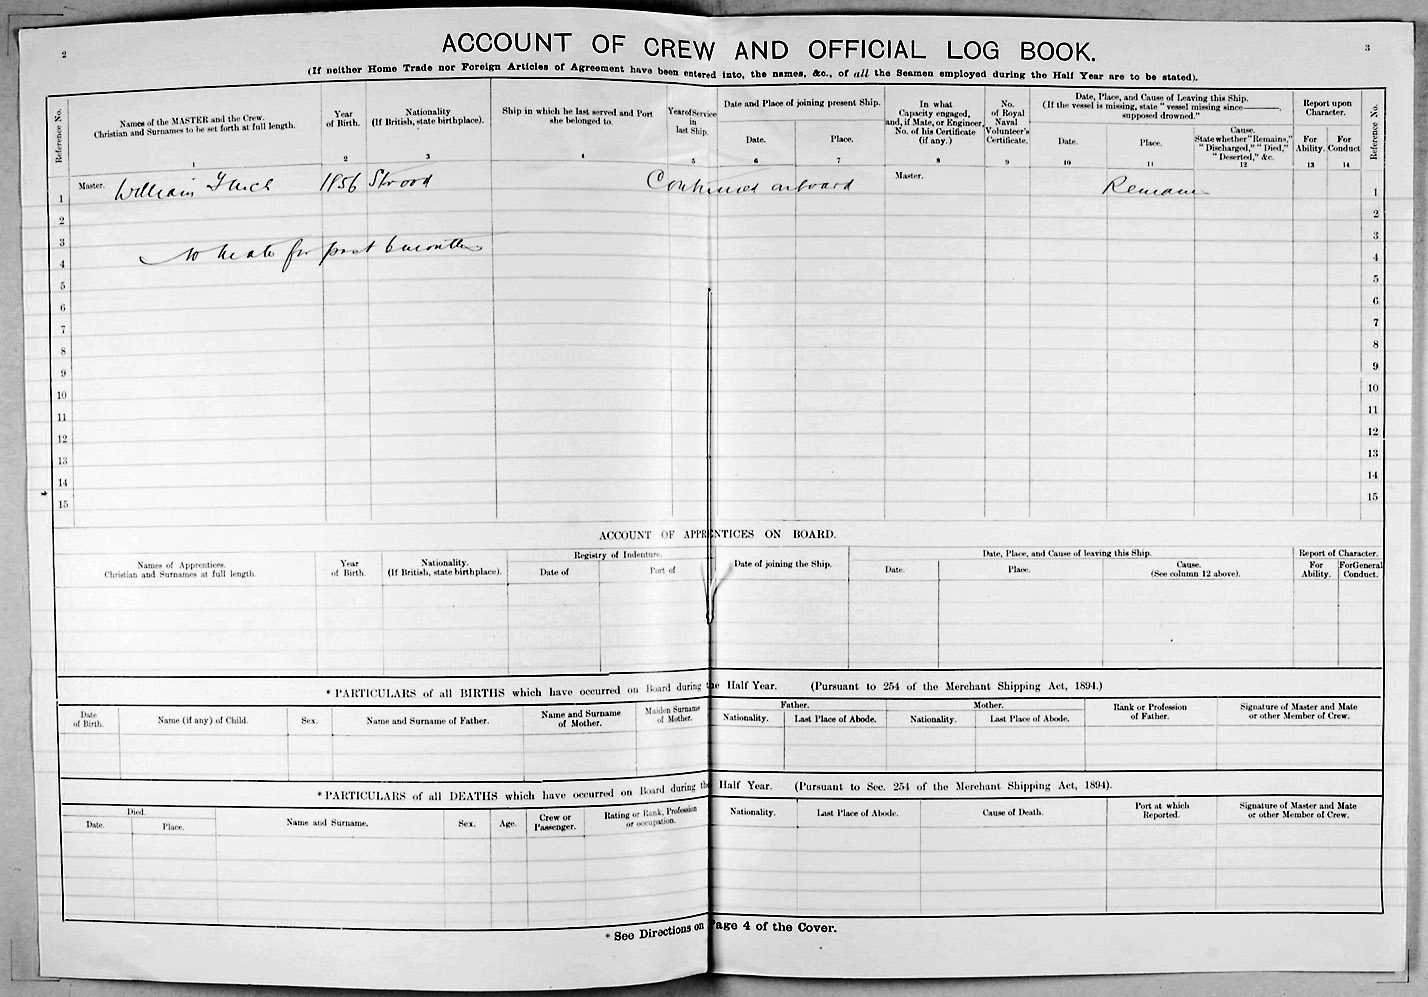 2
ACCOUNT OF CREW AND OFFICIAL LOG BOOK.
3
(If neither Home Trade nor Foreign Articles of Agreement have been entered into, the names, &c., of all the Seamen employed during the Half Year are to be stated).
Reference No.
Names of the MASTER and the Crew.
Christian and Surnames to be set forth at full length.
1
Year
of Birth.
2
Nationality
(If British, state birthplace).
3
Ship in which he last served and Port
she belonged to.
4
Year of Service
in
last Ship.
5
Date and Place of joining present Ship.
Date.
6
Place.
7
In what
Capacity engaged,
and, if Mate, or Engineer,
No. of his Certificate
(if any.)
8
No.
of Royal
Naval
Volunteer's
Certificate.
9
Date, Place, and Cause of Leaving this Ship.
(If the vessel is missing, state "vessel missing since———,
supposed drowned."
Date.
10
Place.
11
Cause.
State whether "Remains,"
"Discharged," "Died,"
"Deserted," &c.
12
Report upon
Character.
For
Ability.
13
For
Conduct
14
Reference No.
1 Master. William 1856 Strood Continued onboard Master. Remains 1
2 2
3 3
no mate for past 6 months
4 4
5 5
6 6
7 7
8 8
9 9
10 10
11 11
12 12
13 13
14 14
15 15
ACCOUNT OF APPRENTICES ON BOARD.
Names of Apprentices.
Christian and Surnames at full length.
Year
of Birth.
Nationality.
(If British, state birthplace).
Registry of Indenture.
Date of
Port of
Date of joining the Ship.
Date, Place, and Cause of leaving this Ship.
Date.
Place.
Cause.
(See column 12 above).
Report of Character.
For
Ability.
For General
Conduct.
* PARTICULARS of all BIRTHS which have occurred on Board during the Half Year. (Pursuant to 254 of the Merchant Shipping Act, 1894.)
Date
of Birth.
Name (if any) of Child.
Sex.
Name and Surname of Father.
Name and Surname
of Mother.
Maiden Surname
of Mother.
Father.
Nationality.
Last Place of Abode.
Mother.
Nationality.
Last Place of Abode.
Rank or Profession
of Father.
Signature of Master and Mate
or other Member of Crew.
* PARTICULARS of all DEATHS which have occurred on Board during the Half Year. (Pursuant to Sec. 254 of the Merchant Shipping Act, 1894).
Died.
Date.
Place.
Name and Surname.
Sex.
Age.
Crew or
Passenger.
Rating or Rank, Profession
or occupation.
Nationality.
Last Place of Abode.
Cause of Death.
Port at which
Reported.
Signature of Master and Mate
or other Member of Crew.
* See Directions on Page 4 of the Cover.